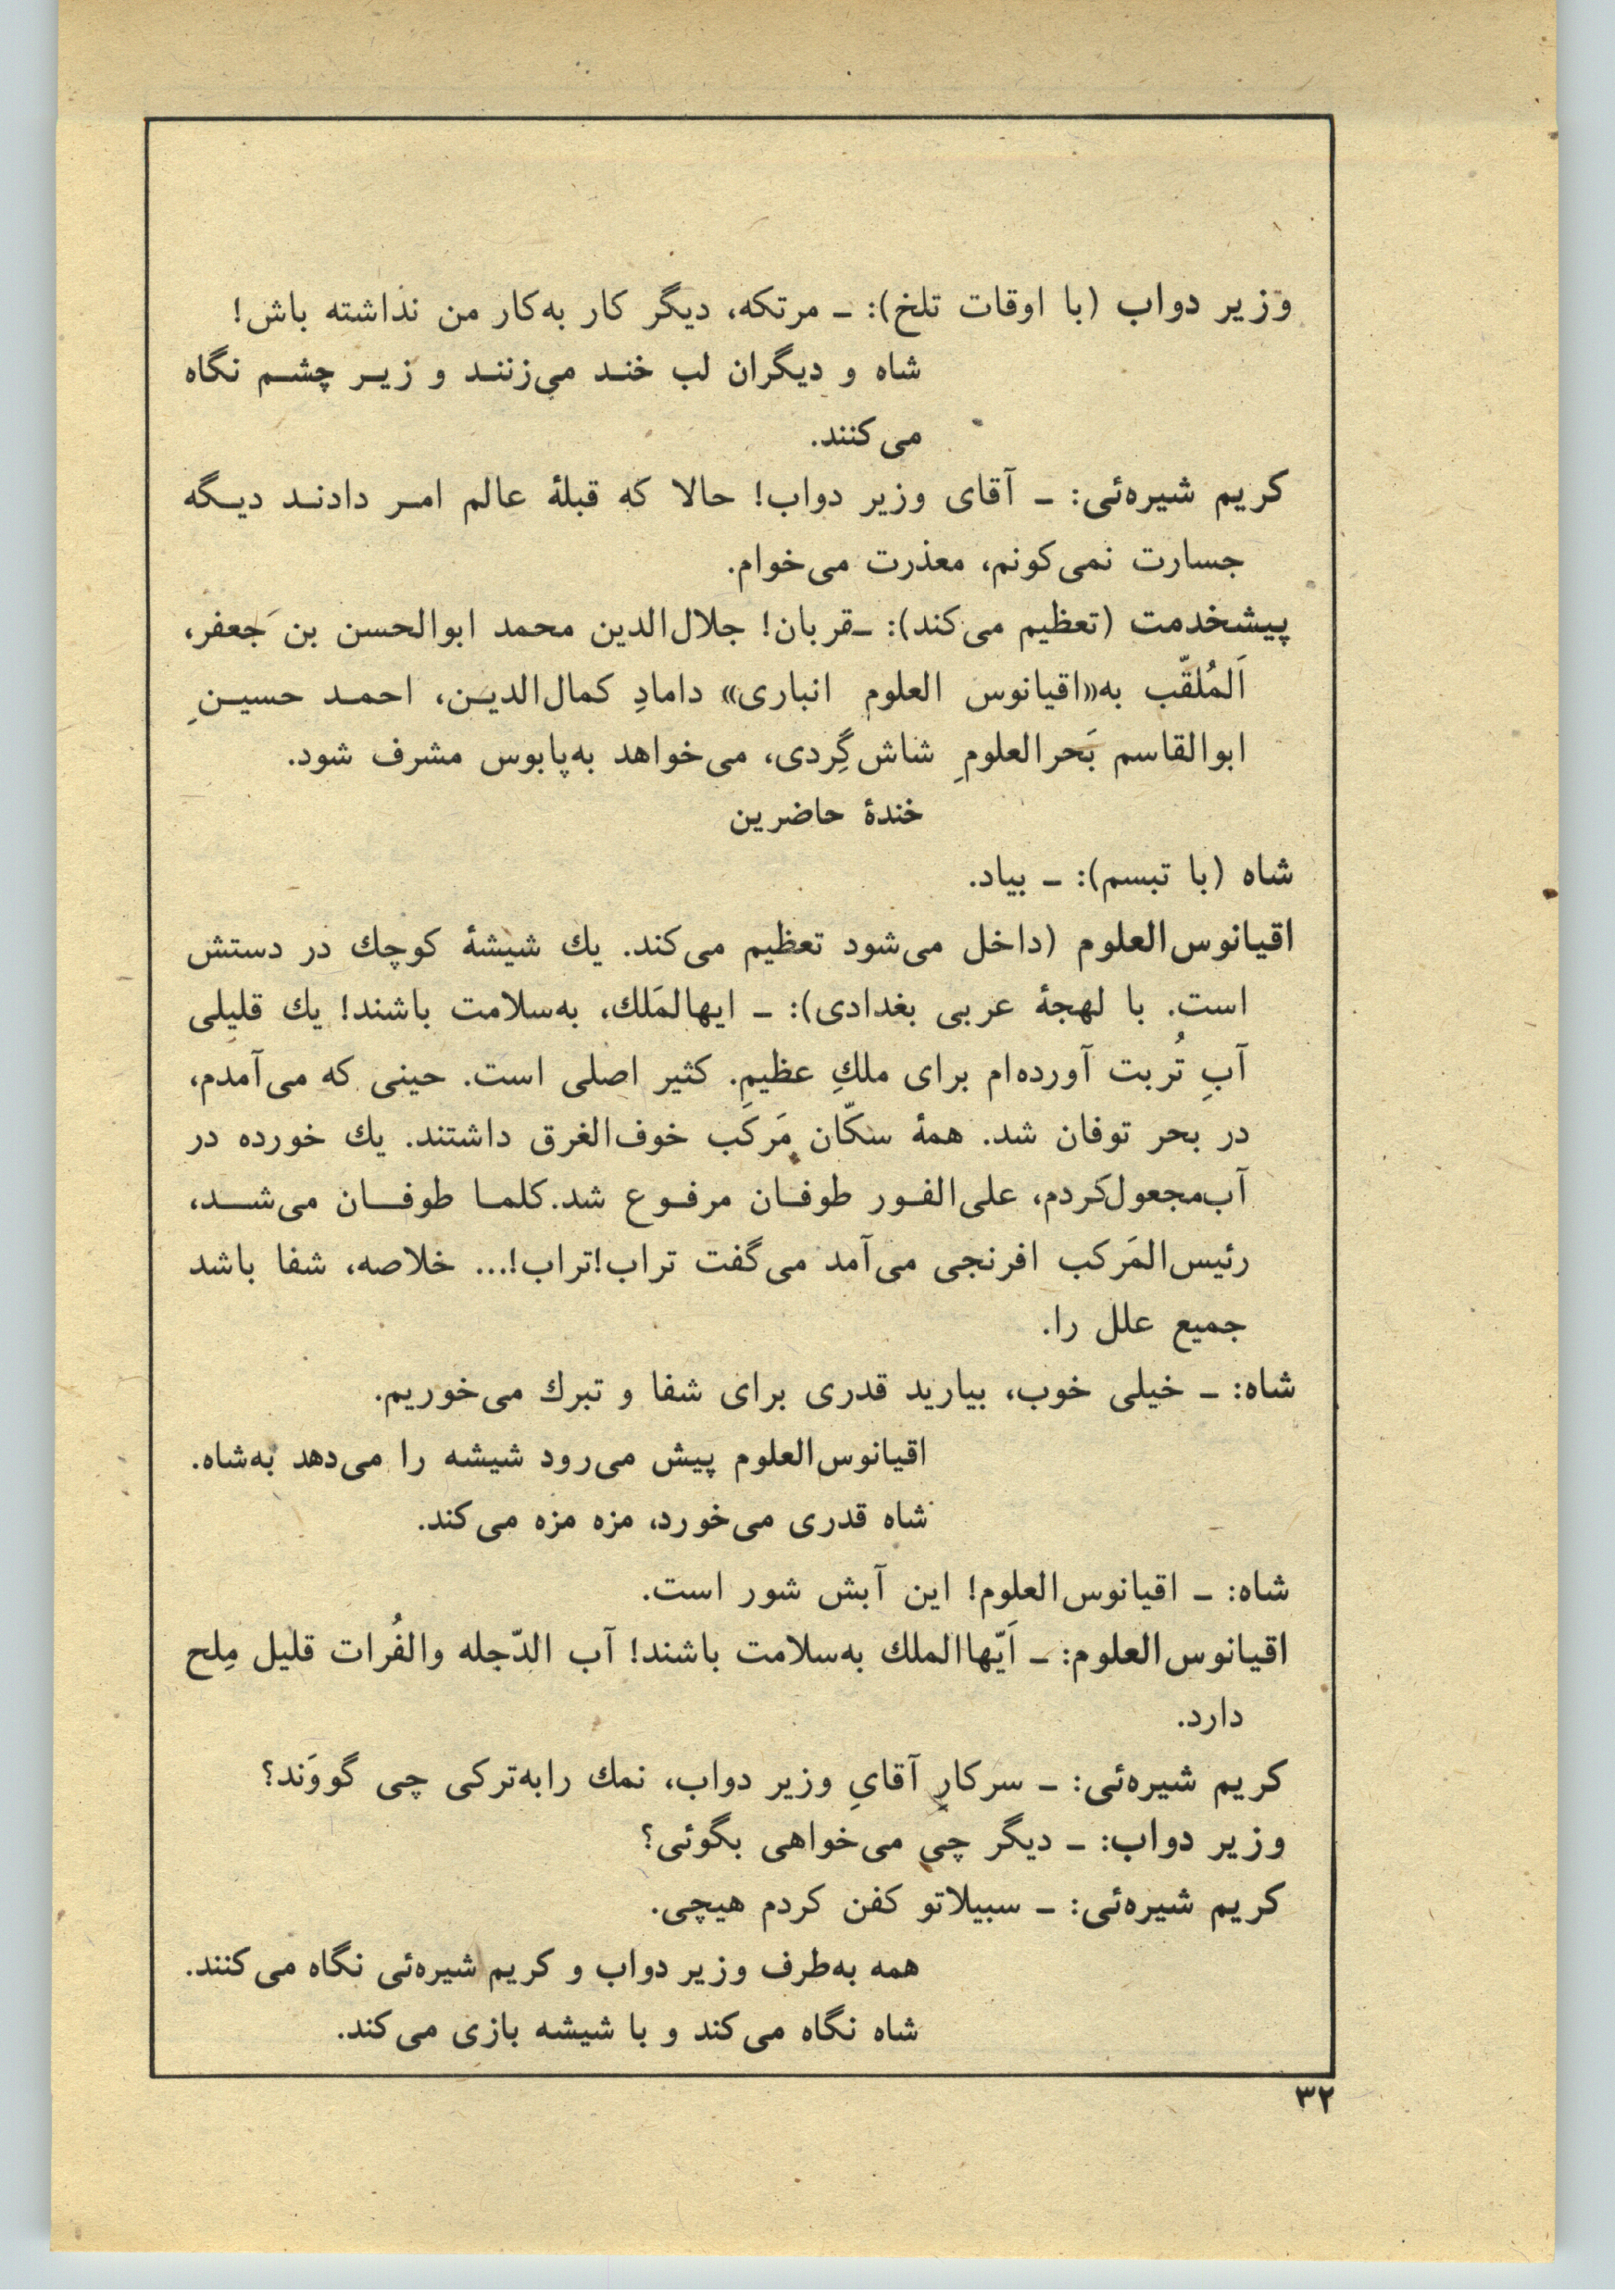 وزیر دواب (با اوقات تلخ): ـ مرتکه، دیگر کار به‌کار من نداشته باش!
شاه و دیگران لب خند می‌زنند و زیر چشم نگاه
می‌کنند.
کریم شیره‌ئی: ـ آقای وزیر دواب! حالا که قبلهٔ عالم امر دادند دیگه
جسارت نمی‌کونم، معذرت می‌خوام.
پیشخدمت (تعظیم می‌کند): ـقربان! جلال‌الدین محمد ابوالحسن بن جَعفر،
اَلمُلقّب به«اقیانوس العلوم انباری» دامادِ کمال‌الدین، احمد حسینِ
ابوالقاسم بَحرالعلومِ شاش‌گِردی، می‌خواهد به‌پابوس مشرف شود.
خندهٔ حاضرین
شاه (با تبسم): ـ بیاد.
اقیانوس‌العلوم (داخل می‌شود تعظیم می‌کند. یك شیشهٔ کوچك در دستش
است. با لهجهٔ عربی بغدادی): ـ ایهالمَلك، به‌سلامت باشند! یك قلیلی
آبِ تُربت آورده‌ام برای ملكِ عظیم. کثیر اصلی است. حینی که می‌آمدم،
در بحر توفان شد. همهٔ سکّان مَرکَب خوف‌الغرق داشتند. یك خورده در
آب‌مجعول‌کردم، علی‌الفور طوفان مرفوع شد. کلما طوفان می‌شد،
رئیس‌المَرکب افرنجی می‌آمد می‌گفت تراب!تراب!... خلاصه، شفا باشد
جمیع علل را.
شاه: ـ خیلی خوب، بیارید قدری برای شفا و تبرك می‌خوریم.
اقیانوس‌العلوم پیش می‌رود شیشه را می‌دهد به‌شاه.
شاه قدری می‌خورد، مزه مزه می‌کند.
شاه: ـ اقیانوس‌العلوم! این آبش شور است.
اقیانوس‌العلوم: ـ اَیّهاالملك به‌سلامت باشند! آب الدّجله والفُرات قلیل مِلح
دارد.
کریم شیره‌ئی: ـ سرکارِ آقایِ وزیر دواب، نمك رابه‌ترکی چی گووَند؟
وزیر دواب: ـ دیگر چی می‌خواهی بگوئی؟
کریم شیره‌ئی: ـ سبیلاتو کفن کردم هیچی.
همه به‌طرف وزیر دواب و کریم شیره‌ئی نگاه می‌کنند.
شاه نگاه می‌کند و با شیشه بازی می‌کند.
۳۲